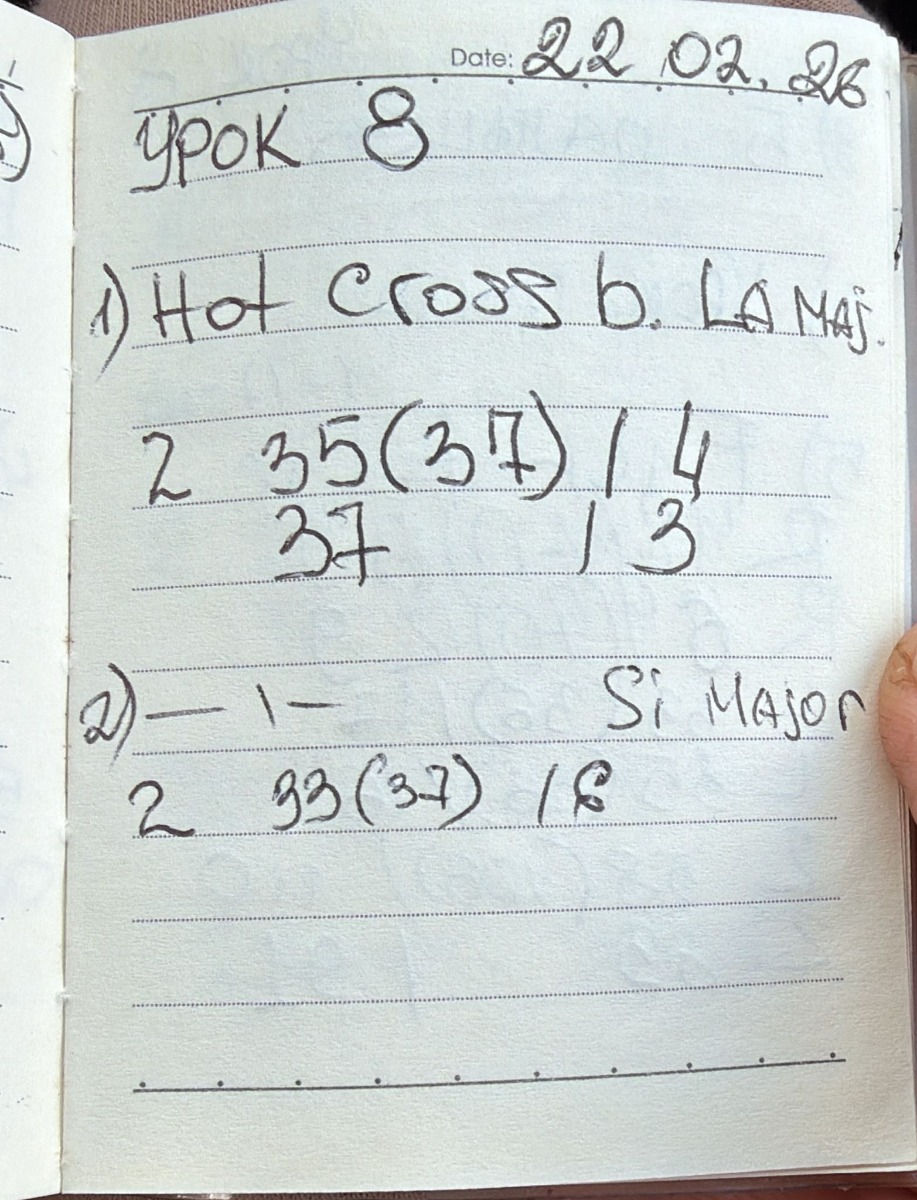 Date: 22.02.26
Урок 8
1) Hot Cross b. LA Maj.
2 35(37) / 4
37 / 3
2) — \ — Si Major
2 33(37) / 6